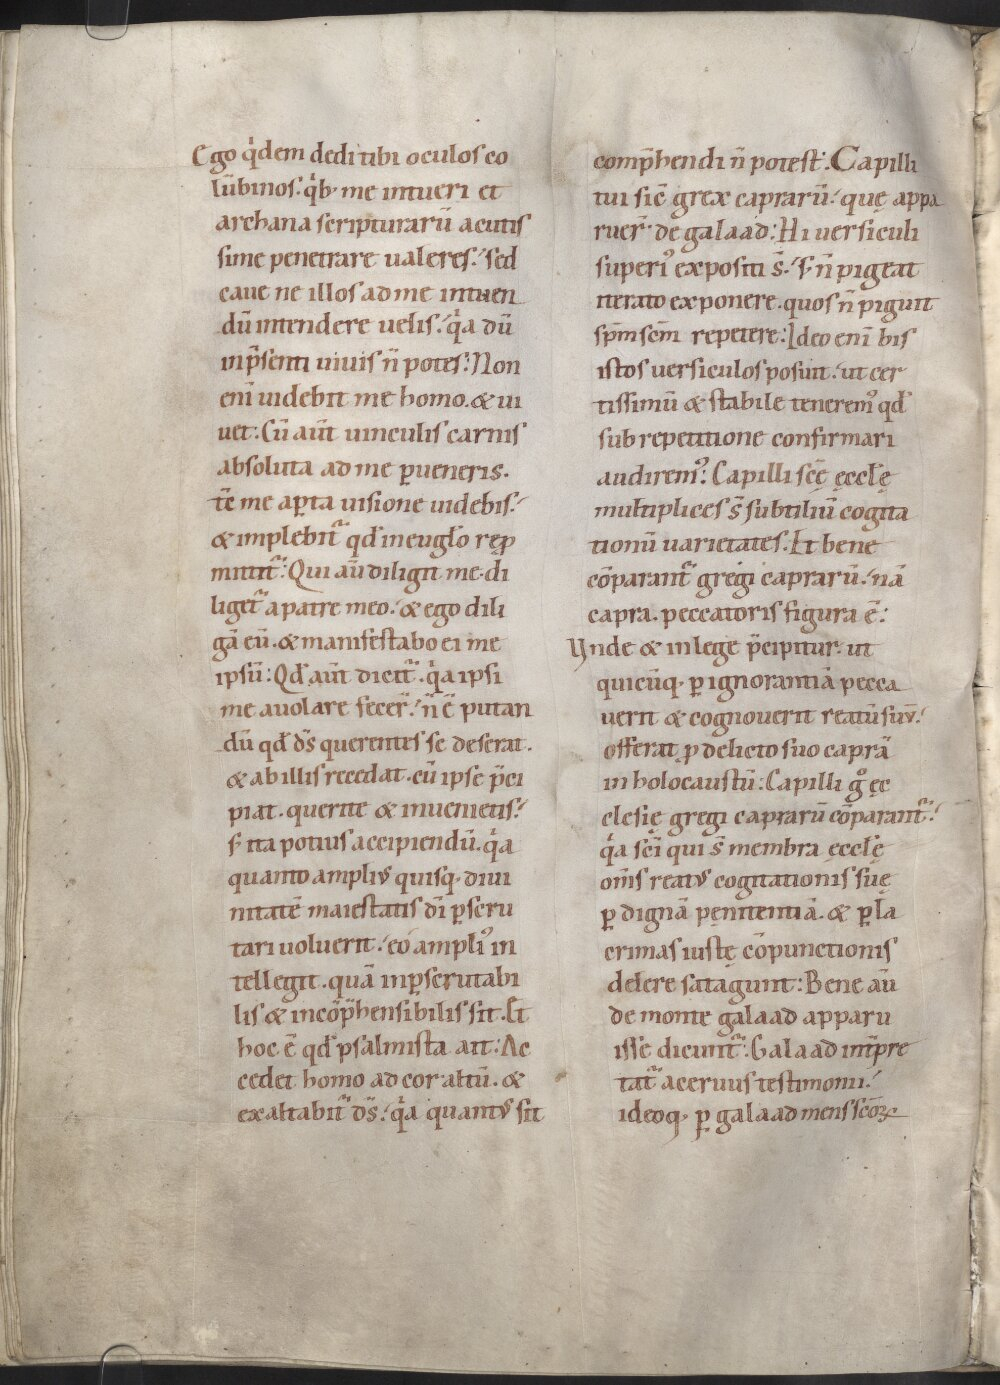 Ego qͥdem dedi tibi oculos co
lūbinos. qͥb; me intueri et
archana scripturarū acutis
sime penetrare ualeres. sed
caue ne illos ad me intuen
dū intendere uelis. qͥa dū
in p̄senti uiuis n̄ potes: Non
enī uidebit me homo. & ui
uet. Cū aūt uinculis carnis
absoluta ad me ꝑueneris.
tc̄ me aꝑta uisione uidebis.
& implebit᷑ qđ in eugło rep̱
mittit᷑: Qui aū diligit me. di
liget᷑ a patre meo. & ego dili
gā eū. & manifestabo ei me
ipsū: Qđ aūt dicit᷑. qͥa ipsi
me auolare fecer̄. n̄ ē putan
dū qđ dꝰs querentes se deserat.
& ab illis recedat. cū ipse p̄ci
piat. querite & inuenietis.
s; ita potius accipiendū. qͥa
quanto ampliꝰ quisq; diui
nitatē maiestatis dī ꝑscru
tari uoluerit. eo ampliꝰ in
tellegit. quā inꝑscrutabi
lis & incōp̄hensibilis sit. Et
hoc ē qđ psalmista ait: Ac
cedet homo ad cor altū. &
exaltabit᷑ dꝰs. qͥa quantꝰ sit
comp̄hendi n̄ potest: Capilli
tui sic̄ grex caprarū. quę appa
ruer̄ de galaad: Hi uersiculi
superiꝰ expositi s̄. s; n̄ pigeat
iterato exponere. quos n̄ piguit
sp̄m sc̄m repetere: Ideo enī bis
istos uersiculos posuit. ut cer
tissimū & stabile teneremꝰ qđ
sub repetitione confirmari
audiremꝰ: Capilli sc̄ę ęccłę
multiplices s̄ subtiliū cogita
tionū uarietates. Et bene
cōparant᷑ gregi caprarū. nā
capra. peccatoris figura ē:
Vnde & in lege p̄cipitur. ut
quicūq; ꝑ ignorantiā pecca
uerit & cognouerit reatū suū.
offerat ꝓ delicto suo caprā
in holocaustū: Capilli gͦ ęc
clesię gregi caprarū cōparant᷑.
qͥa sc̄i qui s̄ membra ęccłę
om̄s reatꝰ cogitationis suę
ꝑ dignā pęnitentiā. & ꝑ la
crimas iustę cōpunctionis
delere satagunt: Bene aū
de monte galaad apparu
isse dicunt᷑: Galaad int̄pre
tat᷑ aceruus testimonii.
ideoq; ꝑ galaad mens sc̄oꝝ